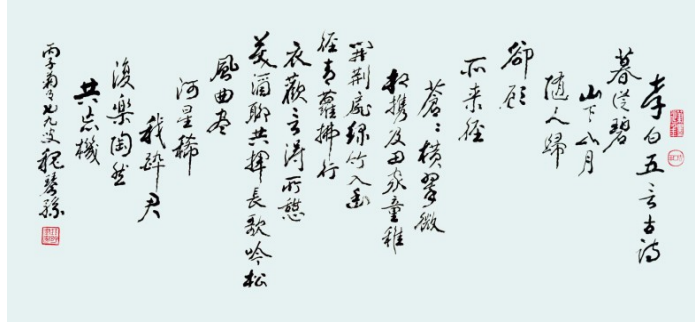 李白五言古詩
暮從碧
山下山月
隨人歸
卻顧
所来徑
蒼々橫翠微
相攜及田家童稚
開荆扉綠竹入幽
徑青蘿拂行
衣歡言得所憩
美酒聊共揮長歌吟松
風曲尽
河星稀
我醉君
復樂陶然
共忘機
丙子菊月七九叟魏